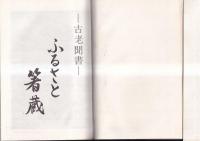 ―古老聞書―
ふるさと
箸蔵